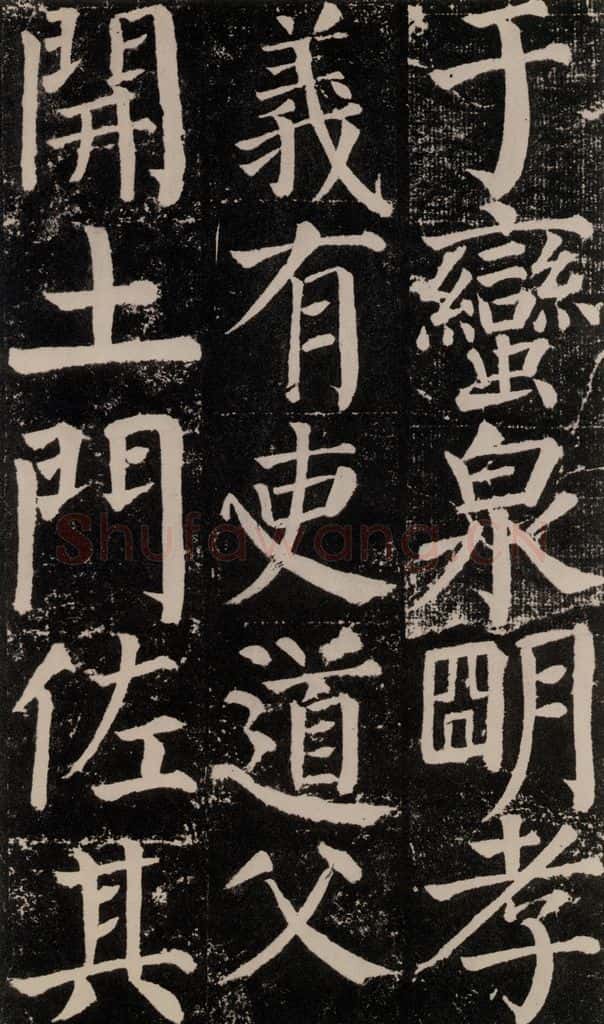 于蠻泉朙孝
義有吏道父
開土門佐其
Shufawang.CN